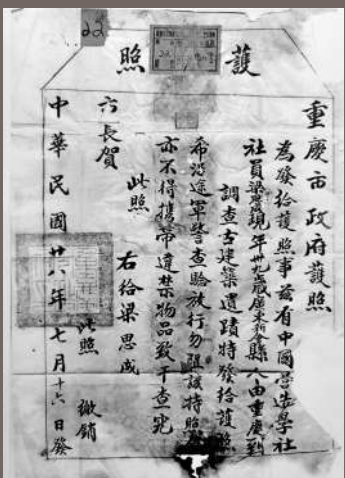 護照
重慶市政府護照
為發給護照事茲有中國營造學社
社員梁思成現年卅九歲廣東新會縣人由重慶到
調查古建築遺蹟特發給護照
希沿途軍警查驗放行勿阻該持照人
亦不得携帶違禁物品致干查究
此照
右給梁思成
市長賀
中華民國廿八年七月十六日發
此照
繳銷